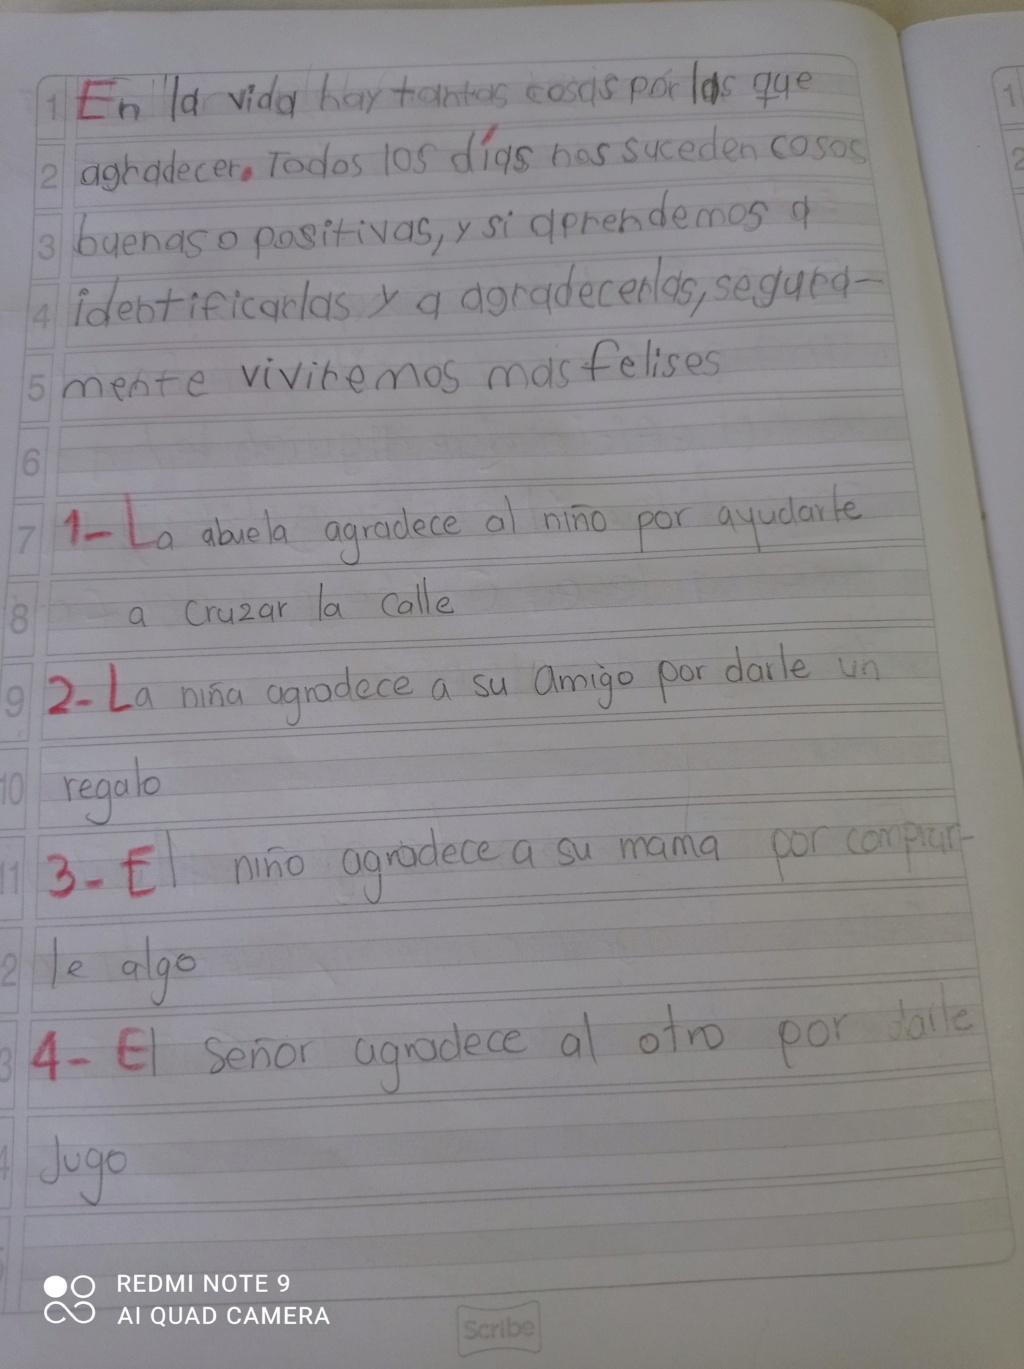 1 En la vida hay tantas cosas por las que
2 agradecer. Todos los días nos suceden cosas
3 buenas o positivas, y si aprendemos a
4 identificarlas y a agradecerlas, segura-
5 mente viviremos mas felises
6
7 1- La abuela agradece al niño por ayudarle
8 a cruzar la calle
9 2- La niña agradece a su amigo por darle un
10 regalo
11 3- El niño agradece a su mama por comprar-
2 le algo
3 4- El señor agradece al otro por darle
4 Jugo
REDMI NOTE 9
AI QUAD CAMERA
Scribe
1
2